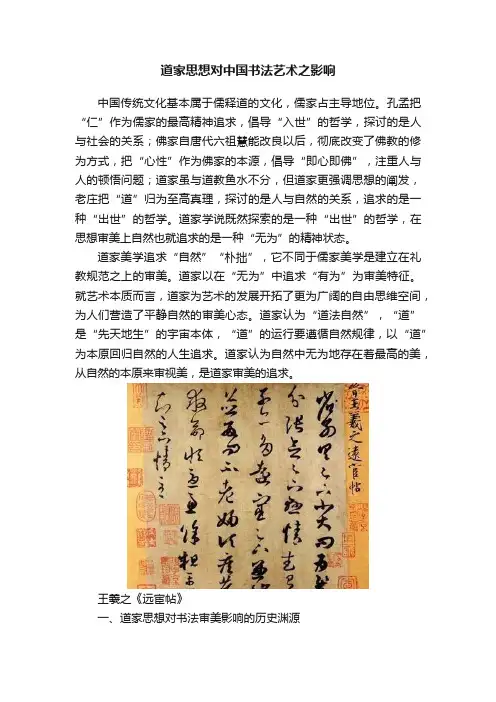 道家思想对中国书法艺术之影响
中国传统文化基本属于儒释道的文化，儒家占主导地位。孔孟把
“仁”作为儒家的最高精神追求，倡导“入世”的哲学，探讨的是人
与社会的关系；佛家自唐代六祖慧能改良以后，彻底改变了佛教的修
为方式，把“心性”作为佛家的本源，倡导“即心即佛”，注重人与
人的顿悟问题；道家虽与道教鱼水不分，但道家更强调思想的阐发，
老庄把“道”归为至高真理，探讨的是人与自然的关系，追求的是一
种“出世”的哲学。道家学说既然探索的是一种“出世”的哲学，在
思想审美上自然也就追求的是一种“无为”的精神状态。
道家美学追求“自然”“朴拙”，它不同于儒家美学是建立在礼
教规范之上的审美。道家以在“无为”中追求“有为”为审美特征。
就艺术本质而言，道家为艺术的发展开拓了更为广阔的自由思维空间，
为人们营造了平静自然的审美心态。道家认为“道法自然”，“道”
是“先天地生”的宇宙本体，“道”的运行要遵循自然规律，以“道”
为本原回归自然的人生追求。道家认为自然中无为地存在着最高的美，
从自然的本原来审视美，是道家审美的追求。
晋王羲之遠宦帖
王羲之《远宦帖》
一、道家思想对书法审美影响的历史渊源